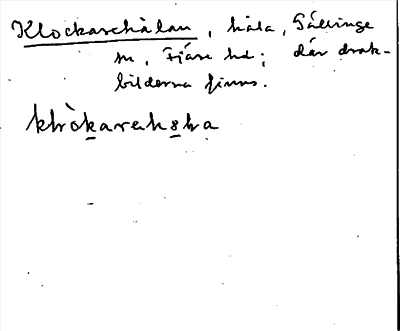 Klockarehålan, håla, Gällinge
sn, Fjäre hd; där drak-
bilderna finns.